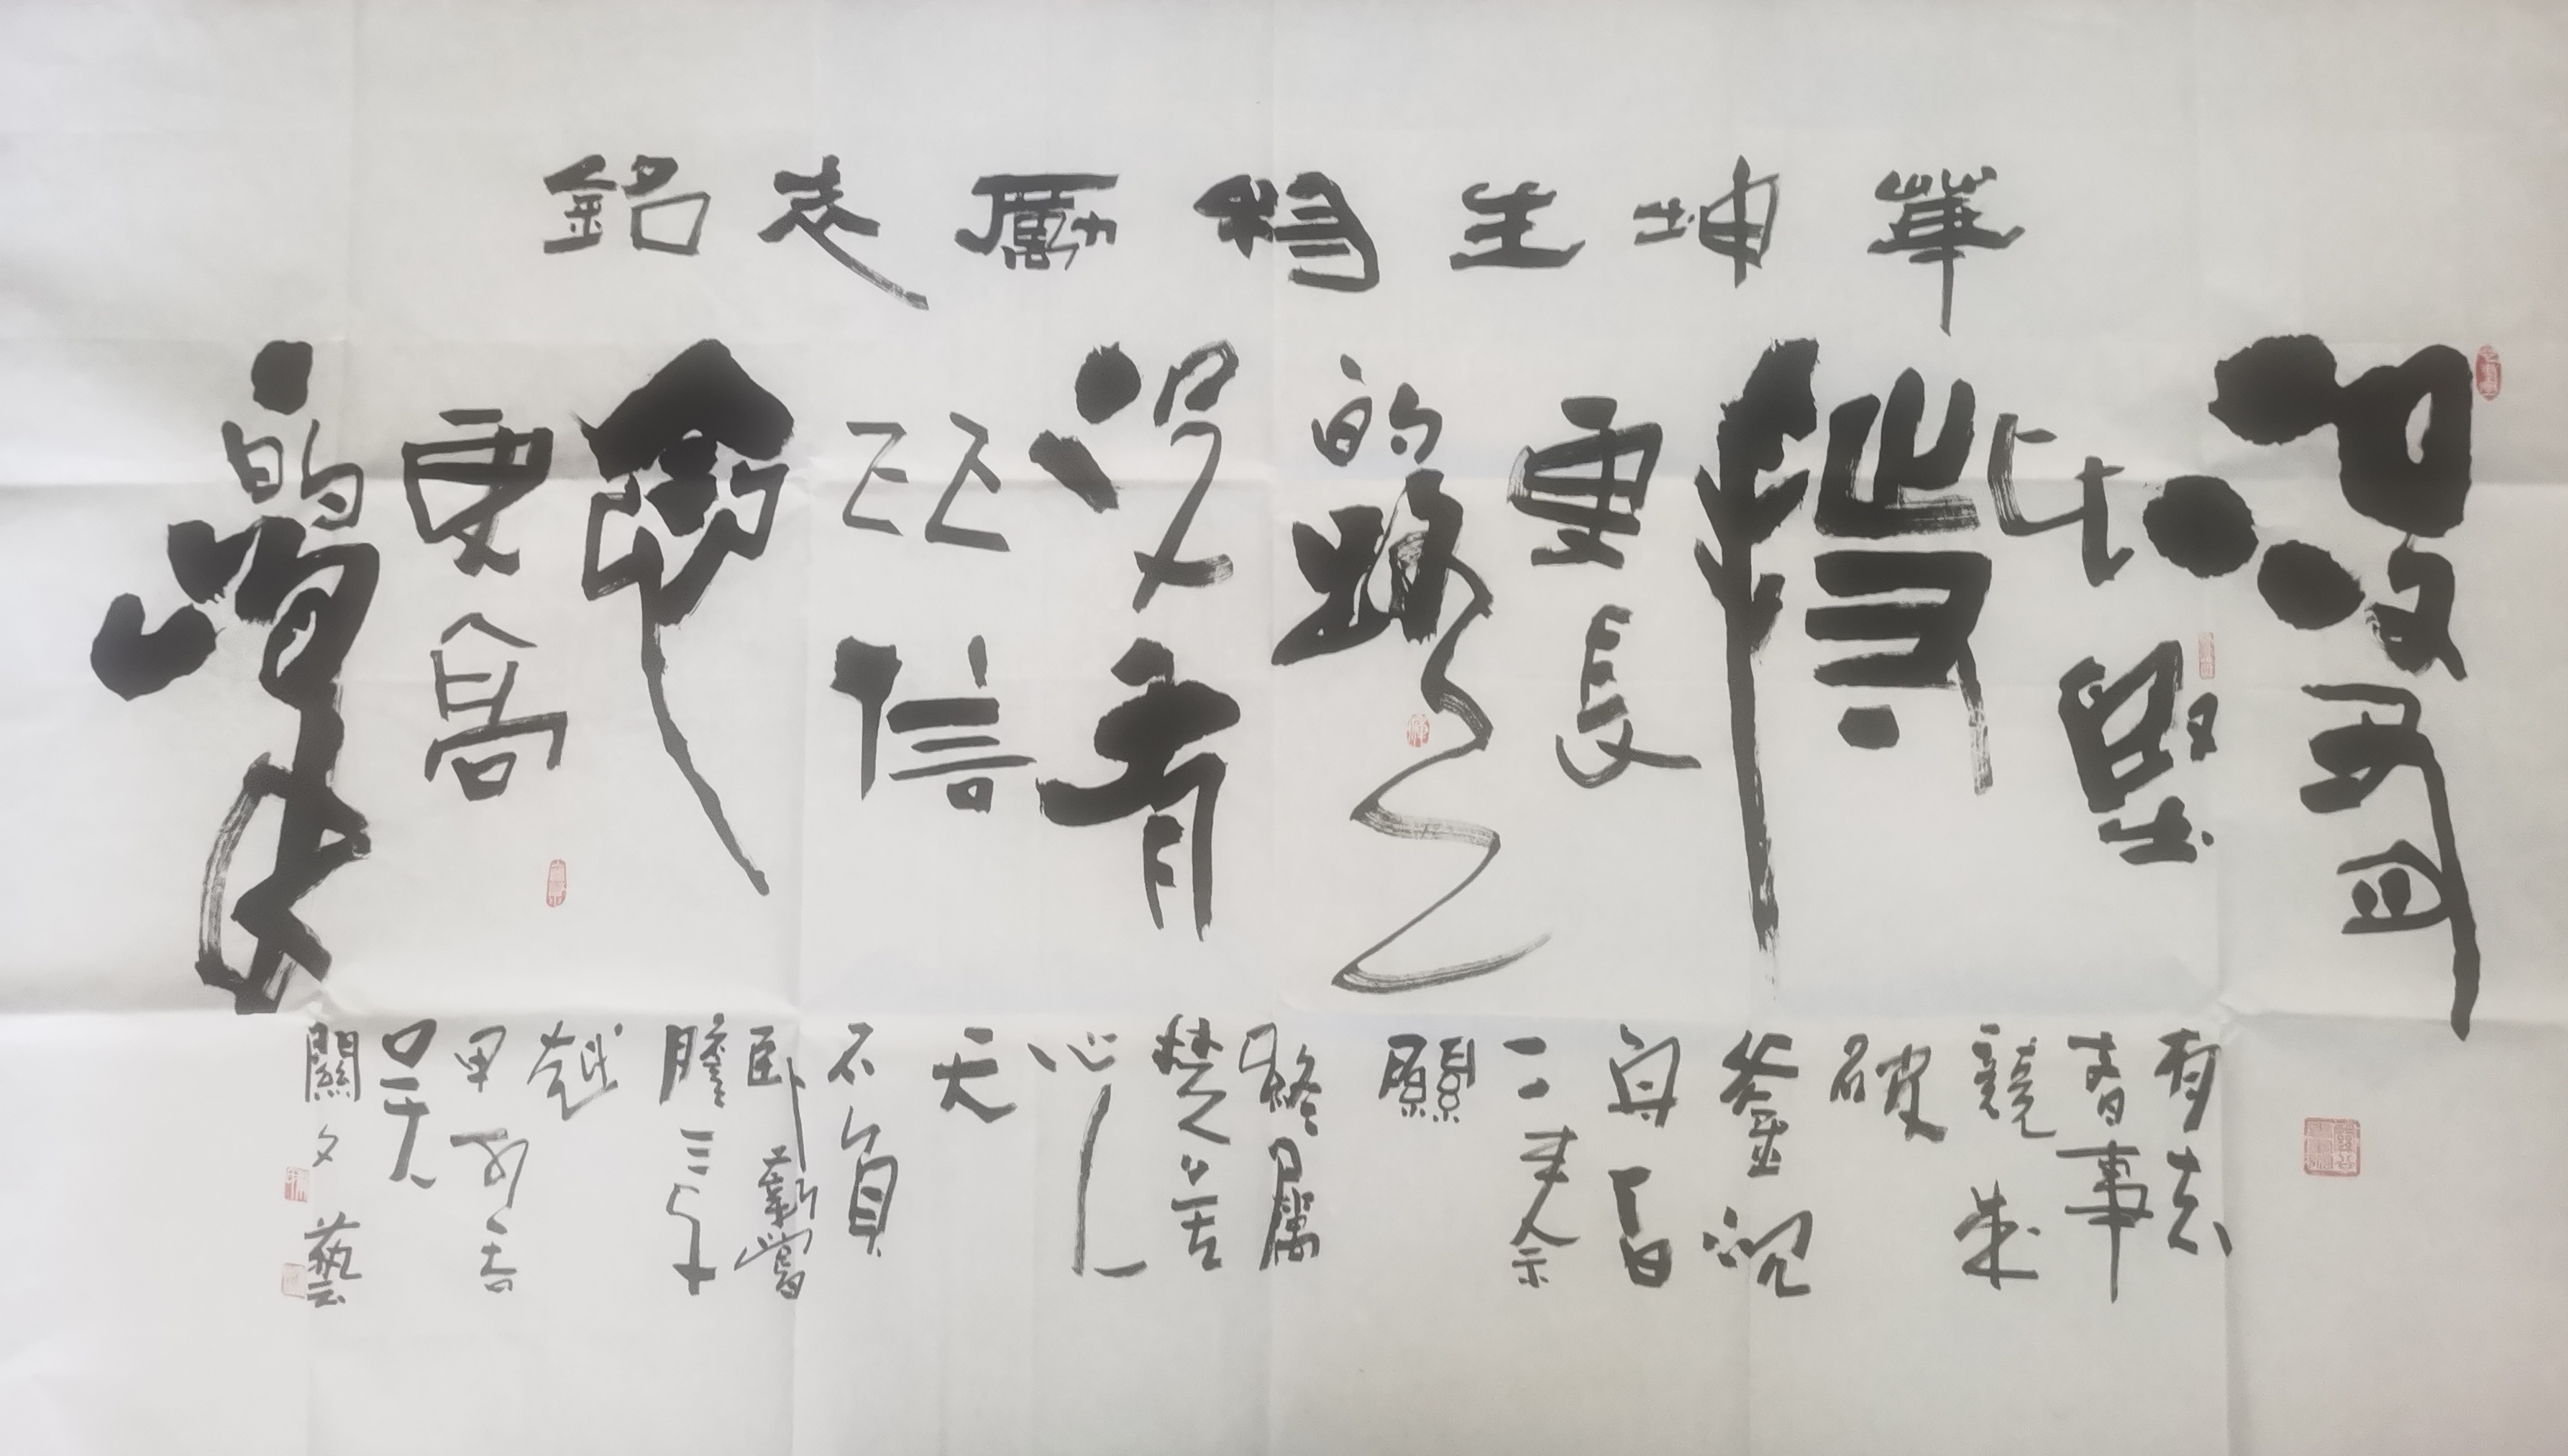 華坤生物勵志銘
没有
比堅
持
更長
的路
没有
比信
念
更高
的峰
有志
者事
競成
破
釜沉
舟百
二秦
關
終屬
楚苦
心人
天
不負
卧薪嘗
膽三千
越
甲可吞
吳
關文藝